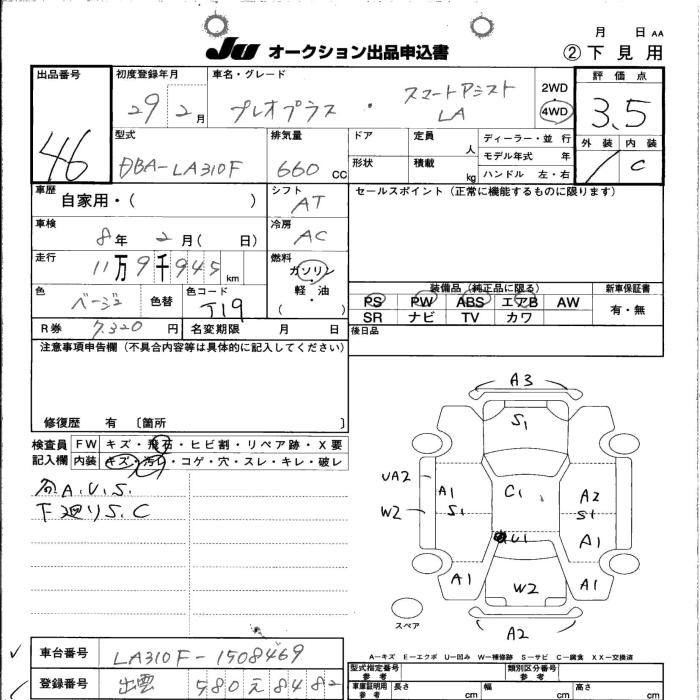 月 日 AA
JU オークション出品申込書 ②下見用
出品番号 46
初度登録年月 29 2月
車名・グレード プレオプラス ・ スマートアシスト LA
2WD
4WD
評価点 3.5
外装 内装
/ C
型式 DBA-LA310F
排気量 660 CC
ドア 定員 人
形状 積載 kg
ディーラー・並行
モデル年式 年
ハンドル 左・右
車歴 自家用・( )
シフト AT
セールスポイント(正常に機能するものに限ります)
車検 8年 2月( 日)
冷房 AC
走行 11万9千945km
燃料 ガソリン
軽・油
( )
色 ベージュ 色替 色コード T19
装備品(純正品に限る) 新車保証書
PS PW ABS エアB AW
SR ナビ TV カワ
有・無
R券 7,320円 名変期限 月 日
後日品
注意事項申告欄(不具合内容等は具体的に記入してください)
修復歴 有 〔箇所 〕
検査員 FW キズ・飛石・ヒビ割・リペア跡・X要
記入欄 内装 キズ・汚レ・コゲ・穴・スレ・キレ・破レ
A.U.S.
下廻りS.C
A3
S1
UA2
W2
A1
S1
C1
A2
S1
U1
A1
A1
W2
A1
A2
スペア
A-キズ E-エクボ U-凹み W-補修跡 S-サビ C-腐食 XX-交換済
車台番号 LA310F-1508469
型式指定番号 類別区分番号
参考 参考
登録番号 出雲 580 え 8482
車庫証明用 参考 長さ cm 幅 cm 高さ cm